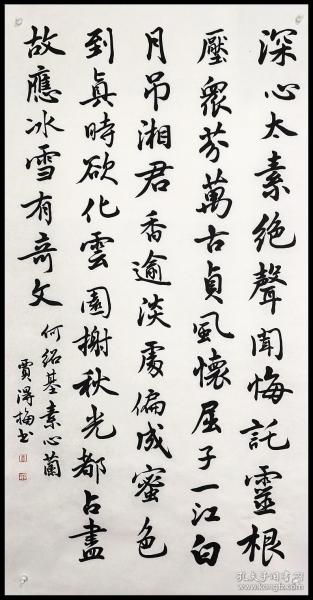 深心太素絶聲聞悔託靈根
壓眾芬萬古貞風懷屈子一江白
月吊湘君香逾淡處偏成蜜色
到真時欲化雲園榭秋光都占盡
故應冰雪有奇文
何紹基素心蘭
賈得梅書
孔夫子旧书网